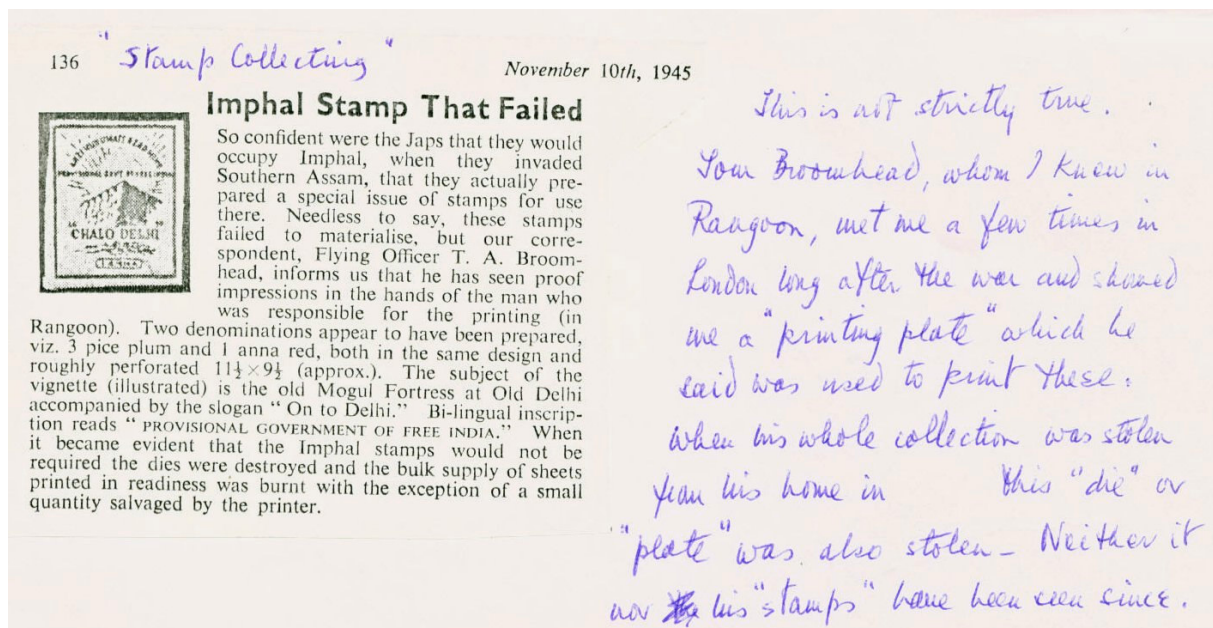 136 "Stamp Collecting"
November 10th, 1945
Imphal Stamp That Failed
PROVISIONAL GOVT
"CHALO DELHI"
So confident were the Japs that they would
occupy Imphal, when they invaded
Southern Assam, that they actually pre-
pared a special issue of stamps for use
there. Needless to say, these stamps
failed to materialise, but our corre-
spondent, Flying Officer T. A. Broom-
head, informs us that he has seen proof
impressions in the hands of the man who
was responsible for the printing (in
Rangoon). Two denominations appear to have been prepared,
viz. 3 pice plum and 1 anna red, both in the same design and
roughly perforated 11½×9½ (approx.). The subject of the
vignette (illustrated) is the old Mogul Fortress at Old Delhi
accompanied by the slogan " On to Delhi." Bi-lingual inscrip-
tion reads " PROVISIONAL GOVERNMENT OF FREE INDIA." When
it became evident that the Imphal stamps would not be
required the dies were destroyed and the bulk supply of sheets
printed in readiness was burnt with the exception of a small
quantity salvaged by the printer.
This is not strictly true.
Tom Broomhead, whom I knew in
Rangoon, met me a few times in
London long after the war and showed
me a "printing plate" which he
said was used to print these.
When his whole collection was stolen
from his home in this "die" or
"plate" was also stolen – Neither it
nor his "stamps" have been seen since.